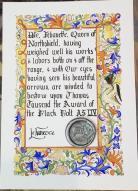 We, Jehanette, Queen of
Northshield, having
weighed well his works
& labors both on & off the
range, & with Our eyes
having seen his beautiful
arrows, are minded to
bestow upon Thomas
Tausend the Award of
the Black Bolt AS LIV
Jehannette